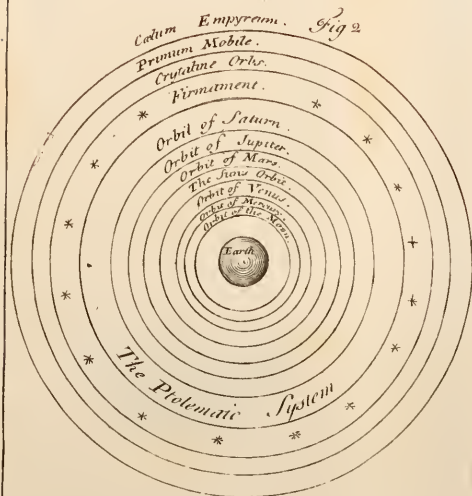 Cælum Empyreum.
Fig 2
Primum Mobile.
Crystaline Orbs.
Firmament.
Orbit of Saturn.
Orbit of Jupiter.
Orbit of Mars.
The Suns Orbit.
Orbit of Venus.
Orbit of Mercury.
Orbit of the Moon.
Earth
The Ptolemaic System